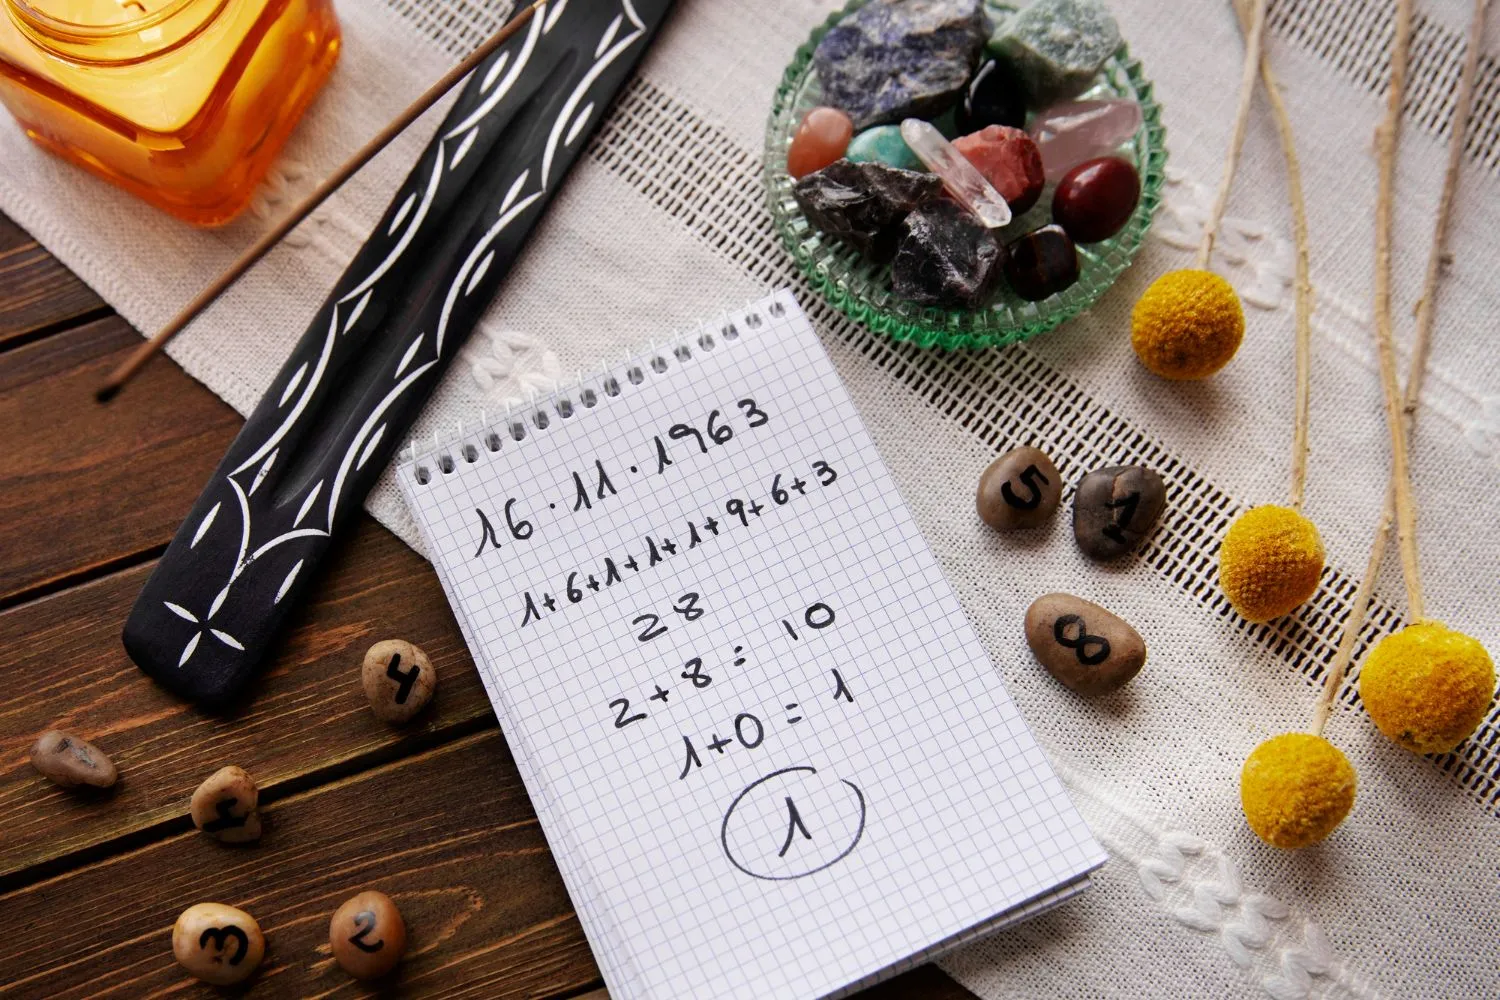 16·11·1963
1+6+1+1+1+9+6+3
28
2+8=10
1+0=1
1
5
1
8
4
3
2